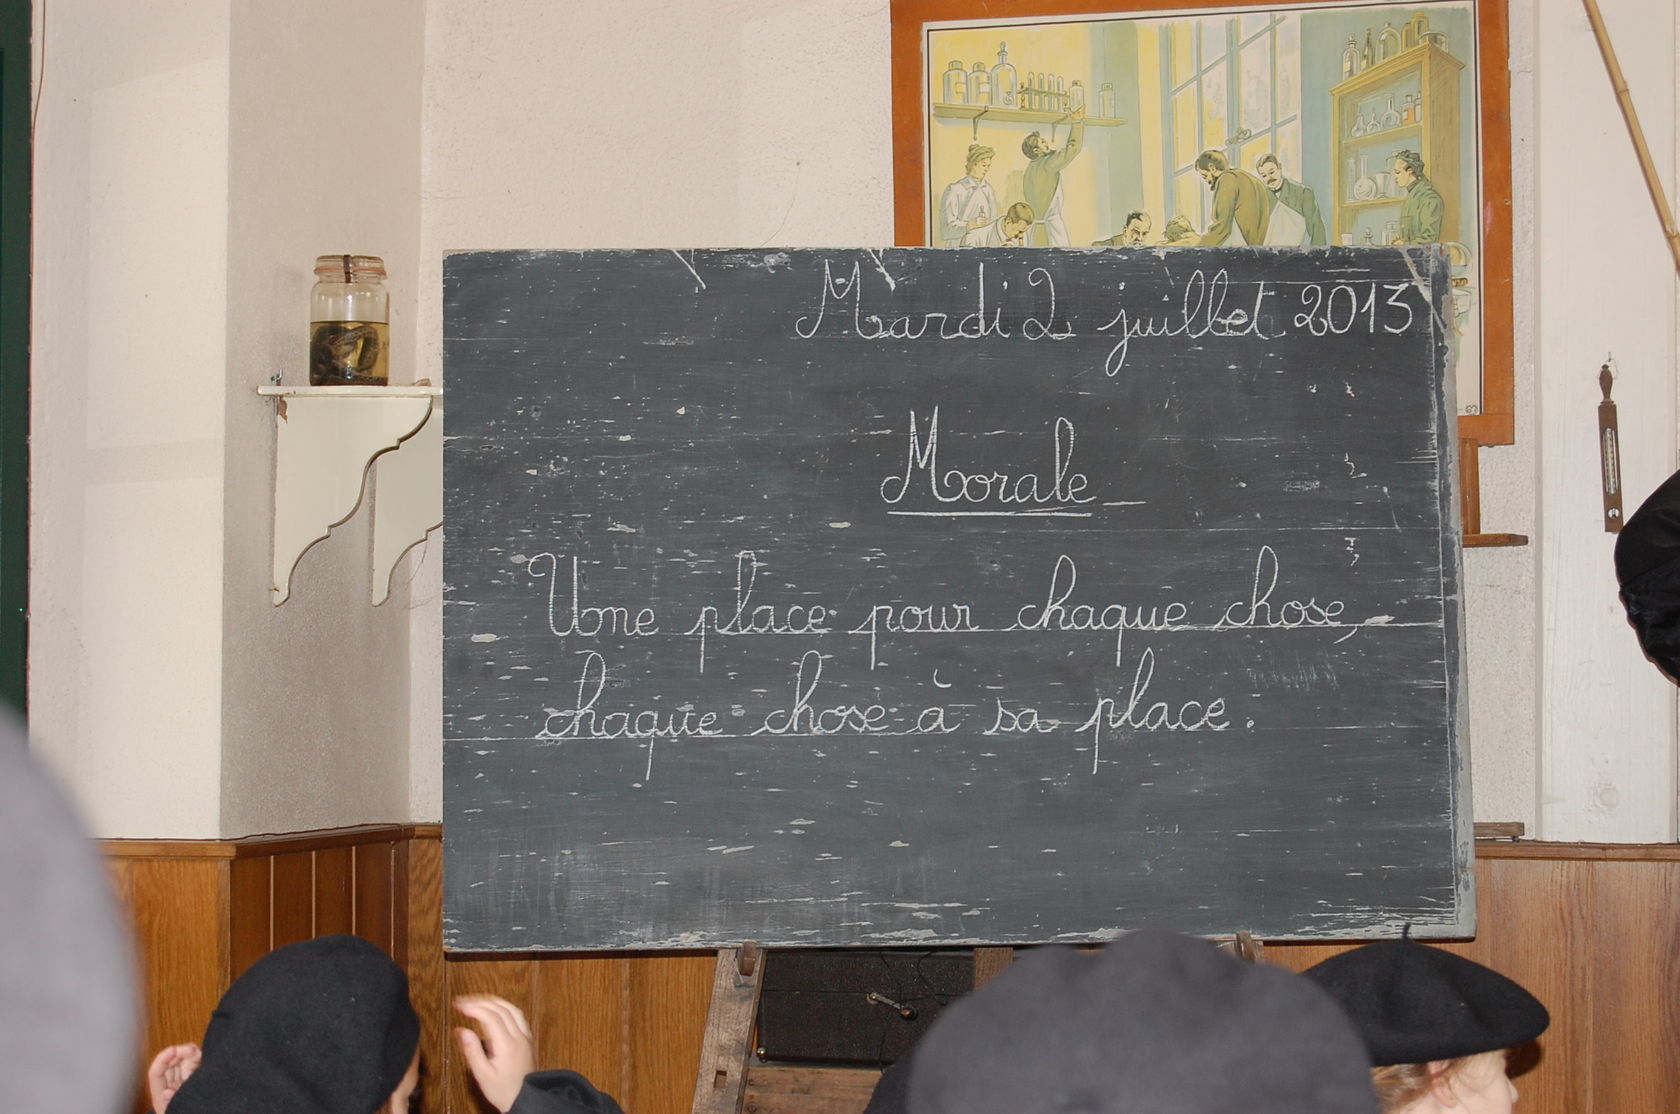 Mardi 2 juillet 2013
Morale
Une place pour chaque chose,
chaque chose à sa place.